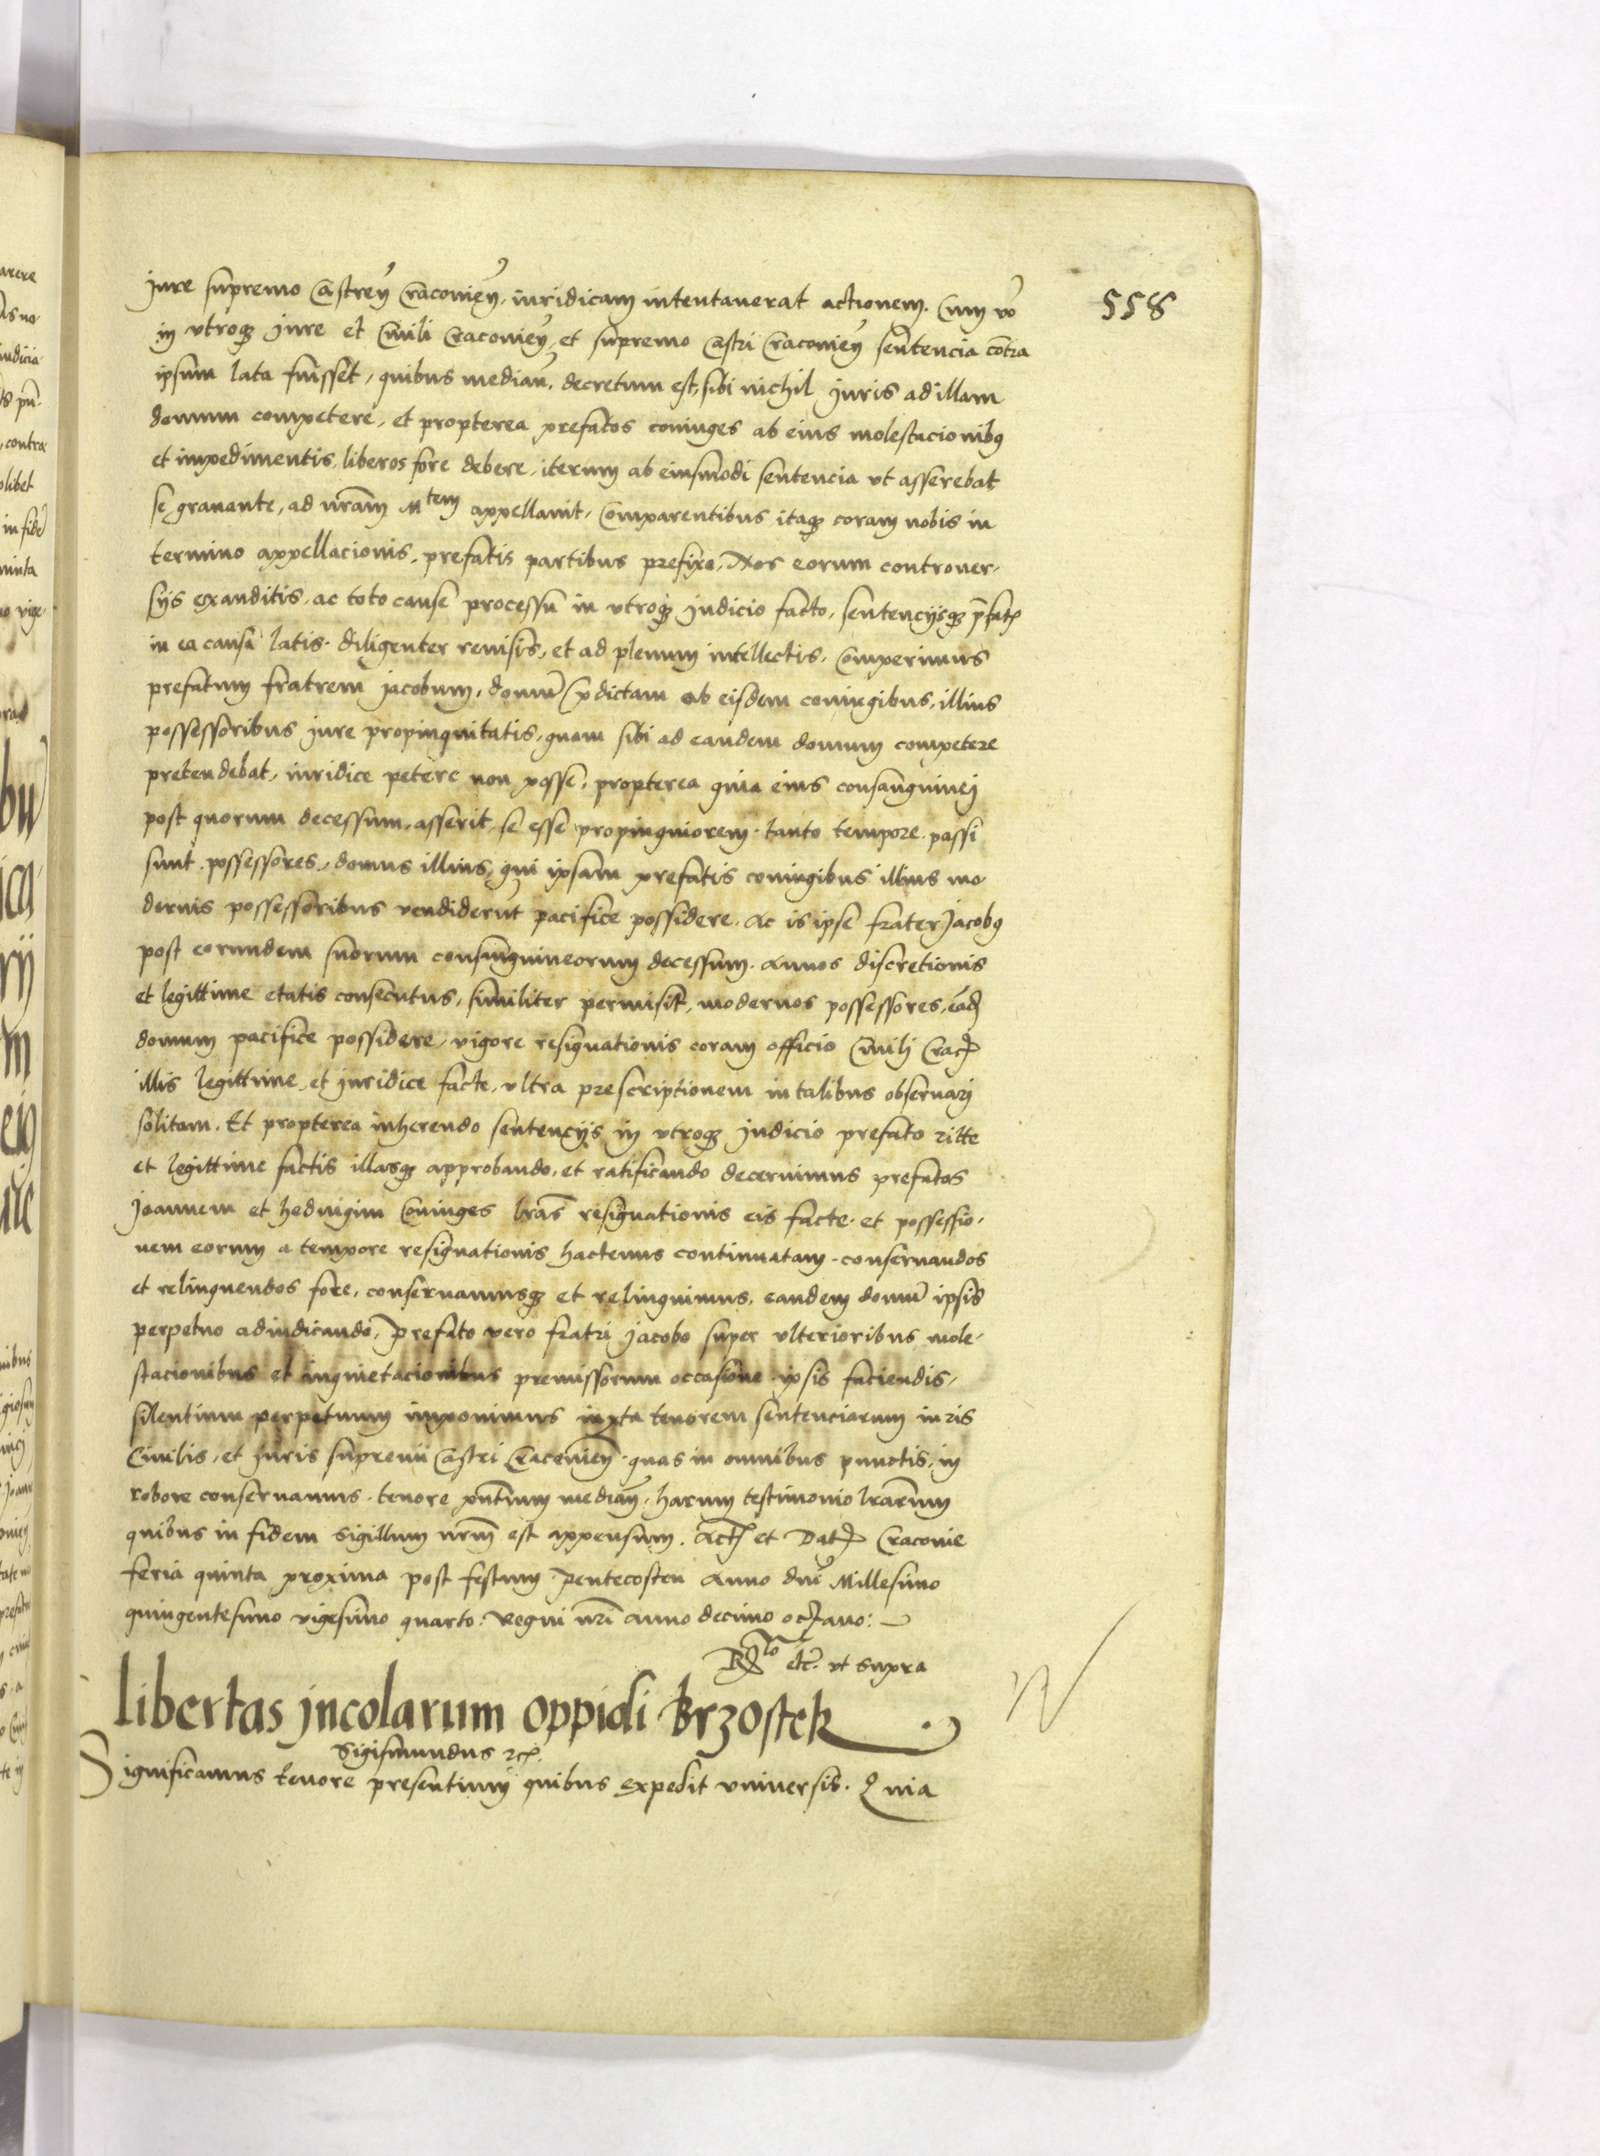 558
Jure supremo Castreñ Cracovieñ, iuridicam intentauerat actionem. Cum vo
in vtroqꝫ jure et Ciuili Cracovieñ, et supremo Castri Cracovieñ sentencia contra
ipsum lata fuisset, quibus median̄, decretum est, sibi nichil juris ad illam
domum competere, et propterea prefatos coniuges ab eius molestacionibꝯ
et impedimentis liberos fore debere, iterum ab eiusmodi sentencia vt asserebat
se grauante, ad nrām Mtem appellauit, Comparentibus itaqꝫ coram nobis in
termino appellacionis, prefatis partibus prefixo, Nos eorum controuer-
sijs exauditis, ac toto cause processu in vtroqꝫ judicio facto, sentencijsqꝫ p̄fatꝭ
in ea causa latis diligenter reuisis, et ad plenum intellectis, Comperimus
prefatum fratrem jacobum, domū p̄dictam ab eisdem coniugibus, illius
possessoribus jure propinquitatis, quam sibi ad eandem domum competere
pretendebat, iuridice petere non posse, propterea quia eius consanguinej
post quorum decessum, asserit, se esse propinquiorem, tanto tempore passi
sunt possessores, domus illius, qui ipsam prefatis coniugibus illius mo
dernis possessoribus vendiderūt pacifice possidere. Ac is ipse frater Jacobꝯ
post eorundem suorum consanguineorum decessum, annos discretionis
et legittime etatis consecutus, similiter permisit, modernos possessores, eādꝭ
domum pacifice possidere, vigore resignationis coram officio Ciuilj Cracꝭ
illis legittime, et juridice facte, vltra prescriptionem in talibus obseruarj
solitam. Et propterea inherendo sentencijs in vtroqꝫ judicio prefato ritte
et legittime factis illasqꝫ approbando, et ratificando decernimus prefatos
Joannem et heduigim Coniuges lrās resignationis eis facte, et possessio-
nem eorum a tempore resignationis hactenus continuatam, conseruandos
et relinquendos fore, conseruamusqꝫ et relinquimus, eandem domū ipsis
perpetuo adiudicando, Prefato vero fratri jacobo super vlterioribus mole-
stacionibus et inquietacionibus premissorum occasione ipsis faciendis,
silentium perpetuum imponimus iuxta tenorem sentenciarum iuris
Ciuilis, et juris supremi Castri Cracovieñ, quas in omnibus punctis, in
robore conseruamus, tenore pn̄tium median̄, harum testimonio lrārum
quibus in fidem sigillum nrm̄ est appensum. Actꝭ et Datꝭ Cracovie
feria quinta proxima post festum Pentecosten Anno dnī Millesimo
quingentesimo vigesimo quarto: Regni nrī anno decimo octauo:
Rlo etc. vt supra
libertas jncolarum oppidi Brzostek
Sigismundus etc.
Significamus tenore presentium quibus expedit vniuersis. Quia